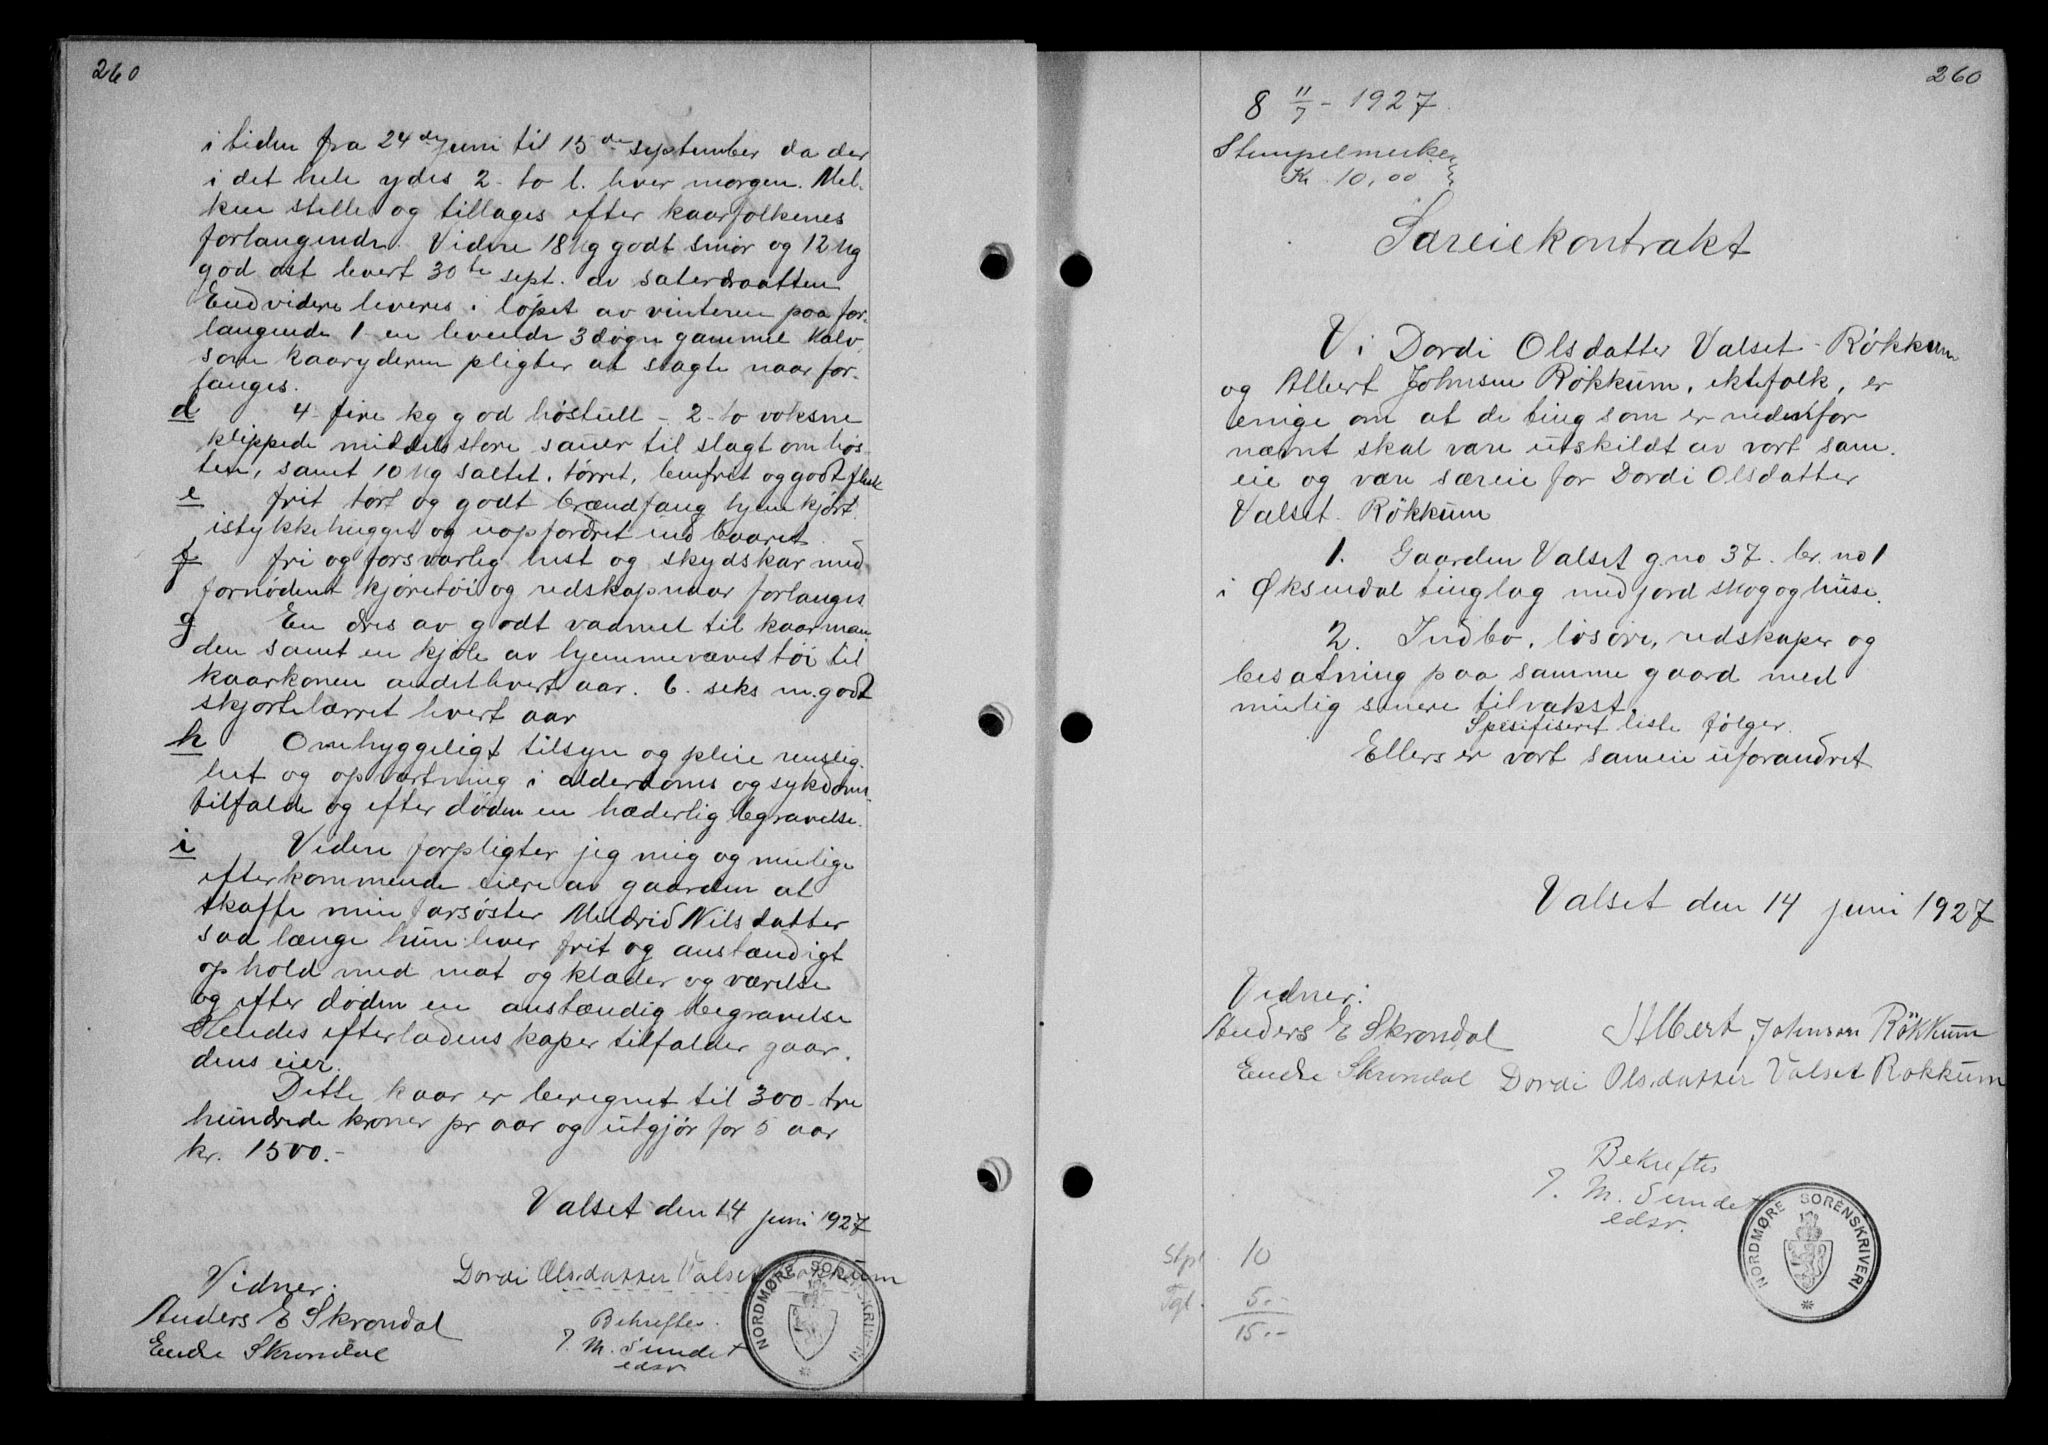 260
i tiden fra 24de juni til 15de september da der
i det hele ydes 2-to l. hver morgen. Mel-
ken stilles og tillages efter kaarfolkenes
forlangende. Videre 18 kg godt smör og 12 kg
god ost levert 30te sept. av säterdraatten
Endvidere leveres i löpet av vinteren paa for-
langende 1-en levende 3 dögn gammel kalv,
som kaaryderen pligter at slagte naar for-
langes.
d 4-fire kg god höstull - 2-to voksne
klippede middelsstore sauer til slagt om hös-
ten, samt 10 kg saltet, törret, benfrit og godt flesk
e frit tört og godt brændfang hjemkjört
istykkehugget og uopfordret ind baaret.
f fri og forsvarlig hest og skydskar med
fornödent kjöretöi og redskap naar forlanges
g En dres av godt vadmel til kaarman
den samt en kjole av hjemmevævet töi til
kaarkonen andethvert aar. 6. seks m. godt
skjortelærret hvert aar
h Omhyggeligt tilsyn og pleie renslig-
het og opvartning i alderdoms og sykdoms-
tilfælde og efter döden en hæderlig begravelse.
i Videre forpligter jeg mig og mulige
efterkommende eiere av gaarden at
skaffe min farsöster Meldrid Nilsdatter
saa længe hun lever frit og anstændigt
ophold med mat og klæder og værelse
og efter döden en anstændig begravelse
Hendes efterladenskaper tilfalder gaar-
dens eier.
Dette kaar er beregnet til 300-tre
hundrede kroner pr aar og utgjör for 5 aar
kr. 1500.-
Valset den 14 juni 1927
Dordi Olsdatter Valset Rökkum
Vidner:
Anders E Skrondal
Endre Skrondal
Bekreftes.
J. M. Sundet
edsv.
NORDMØRE SORENSKRIVERI
260
8 11/7 - 1927.
Stempelmerke
Kr. 10,00
Særeiekontrakt
Vi Dordi Olsdatter Valset-Rökkum
og Albert Johnsen Rökkum, ektefolk, er
enige om at de ting som er nedenfor
nævnt skal være utskildt av vort sam-
eie og være særeie for Dordi Olsdatter
Valset-Rökkum
1. Gaarden Valset g.no 37. br. no 1
i Øksendal tinglag med jord skog og huse.
2. Indbo, lösöre, redskaper og
besætning paa samme gaard med
mulig senere tilvækst.
Spesifiseret liste fölger.
Ellers er vort sameie uforandret
Valset den 14 juni 1927
Vidner:
Anders E Skrondal Albert Johnsen Rökkum
Endre Skrondal Dordi Olsdatter Valset Rokkum
Bekreftes
J. M. Sundet
edsv.
NORDMØRE SORENSKRIVERI
Stpl. 10
Tgl. 5.-
15.-